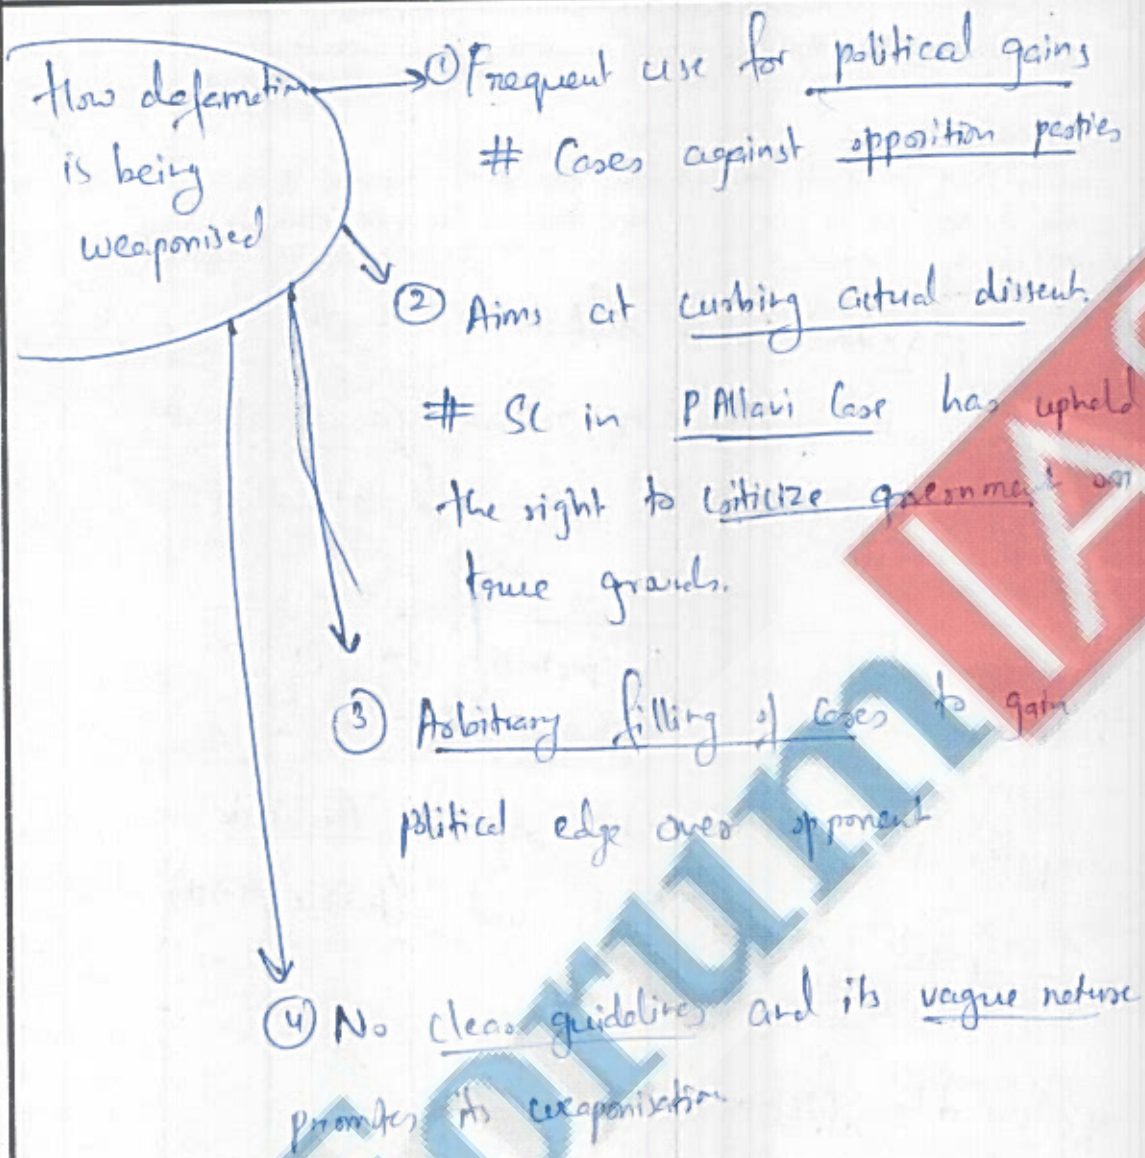 How defamation
is being
weaponised
① Frequent use for political gains
# Cases against opposition parties
② Aims at curbing actual dissent.
# SC in PAllavi Case has upheld
the right to criticize government on
true grounds.
③ Arbitrary filling of cases to gain
political edge over opponent
④ No clear guidelines and its vague nature
promotes its weaponisation
forum IAS